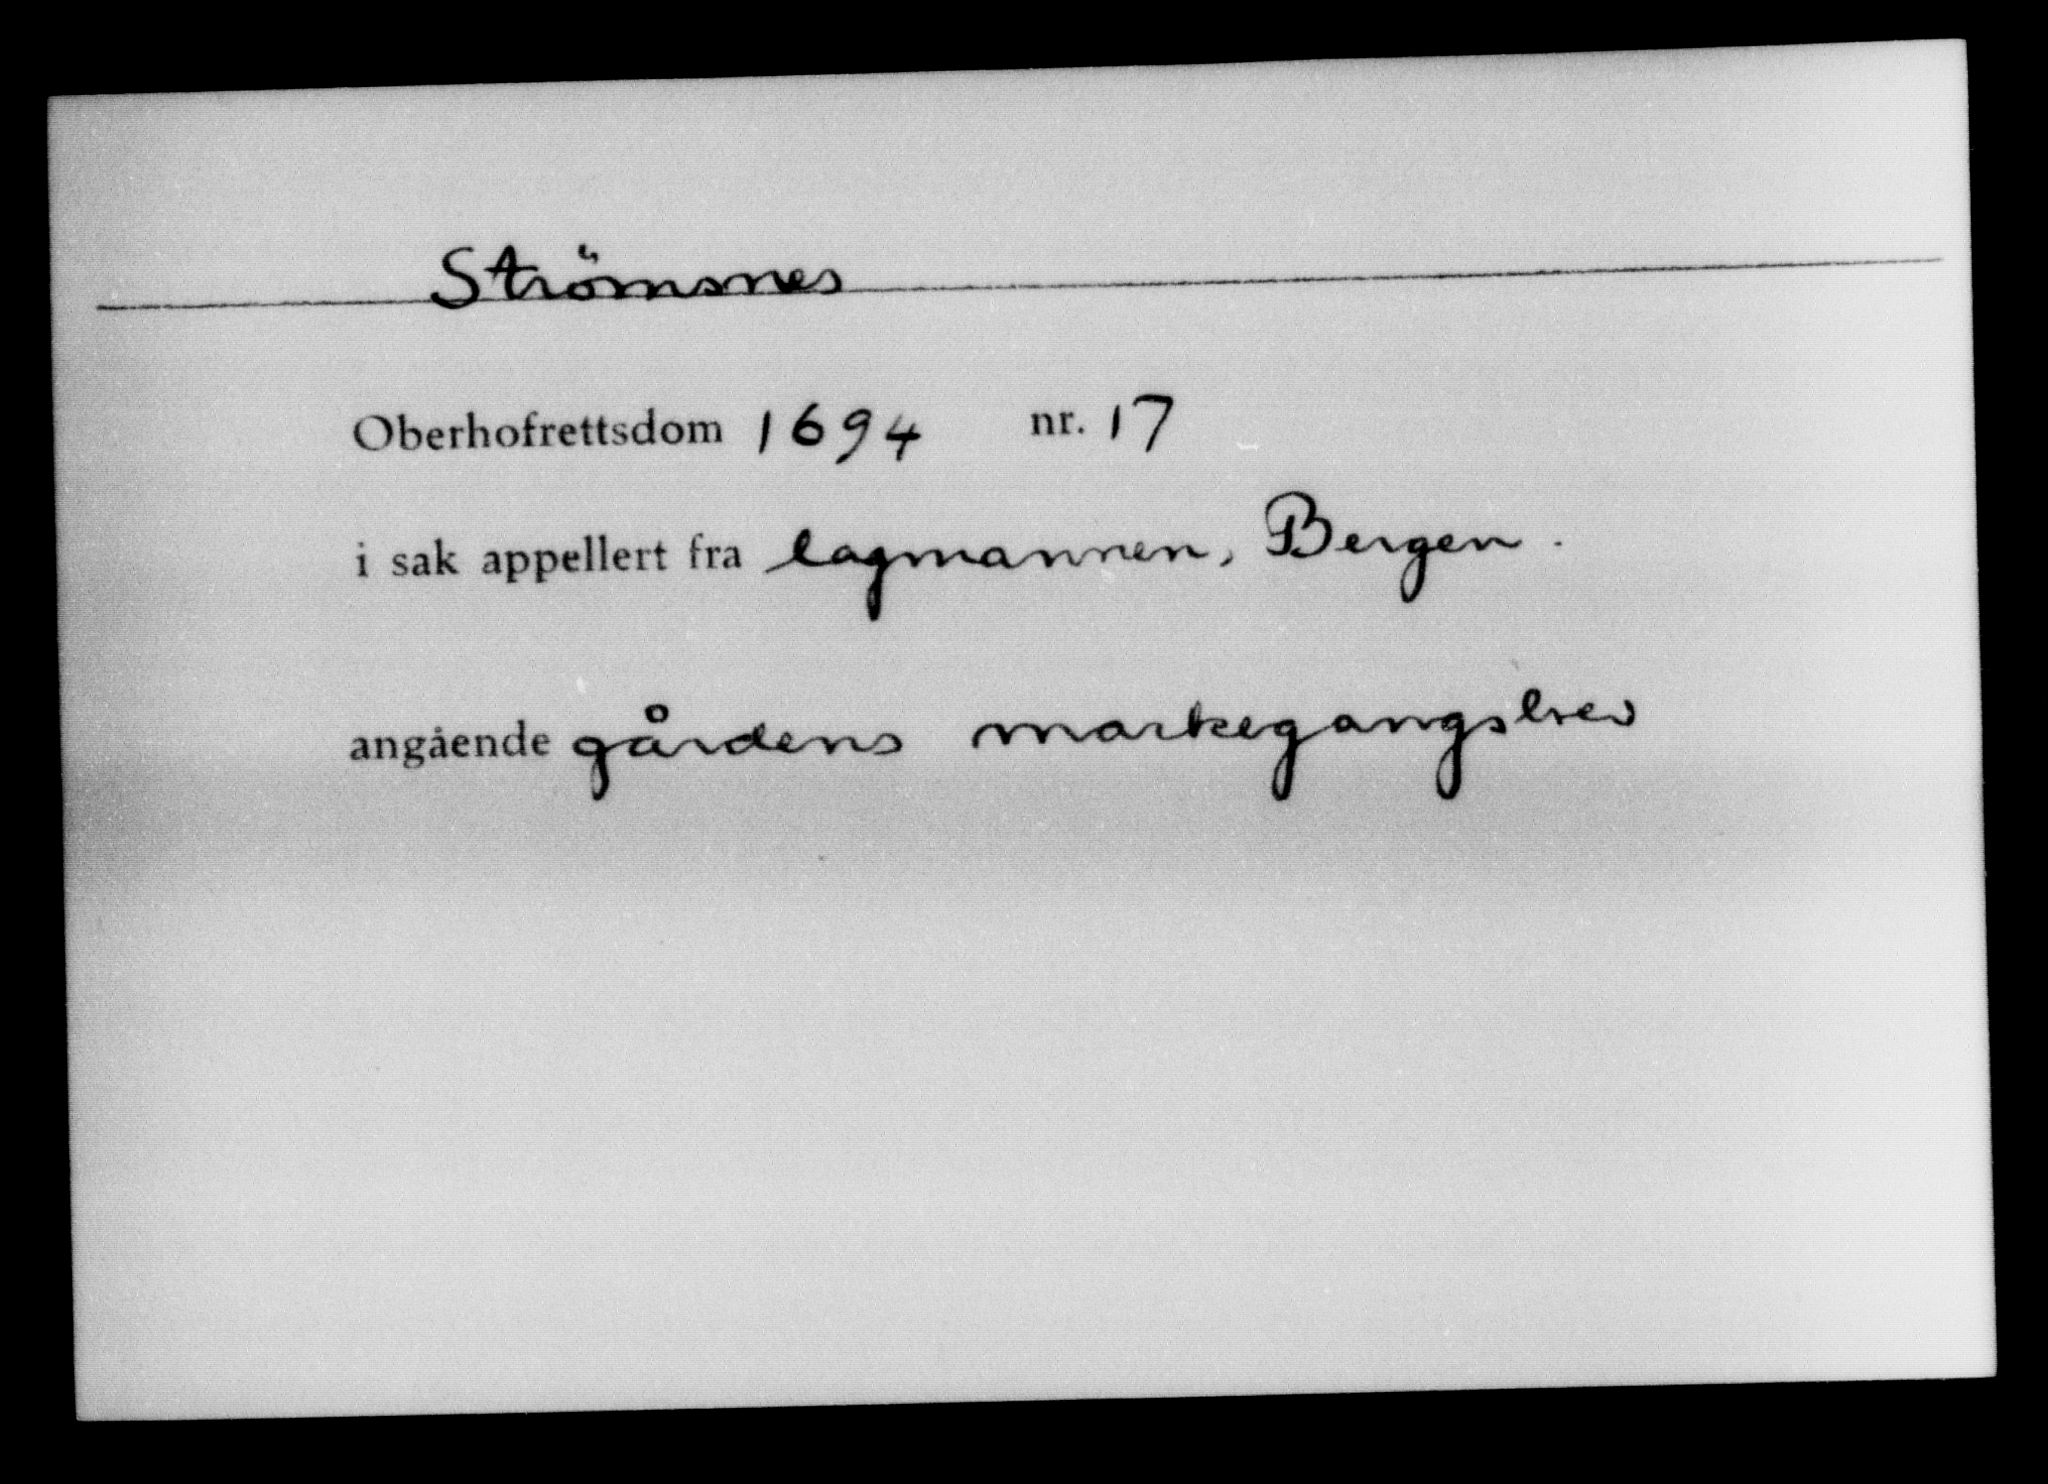 Strömsnes
Oberhofrettsdom 1694 nr. 17
i sak appellert fra lagmannen, Bergen.
angående gårdens markegangsbrev